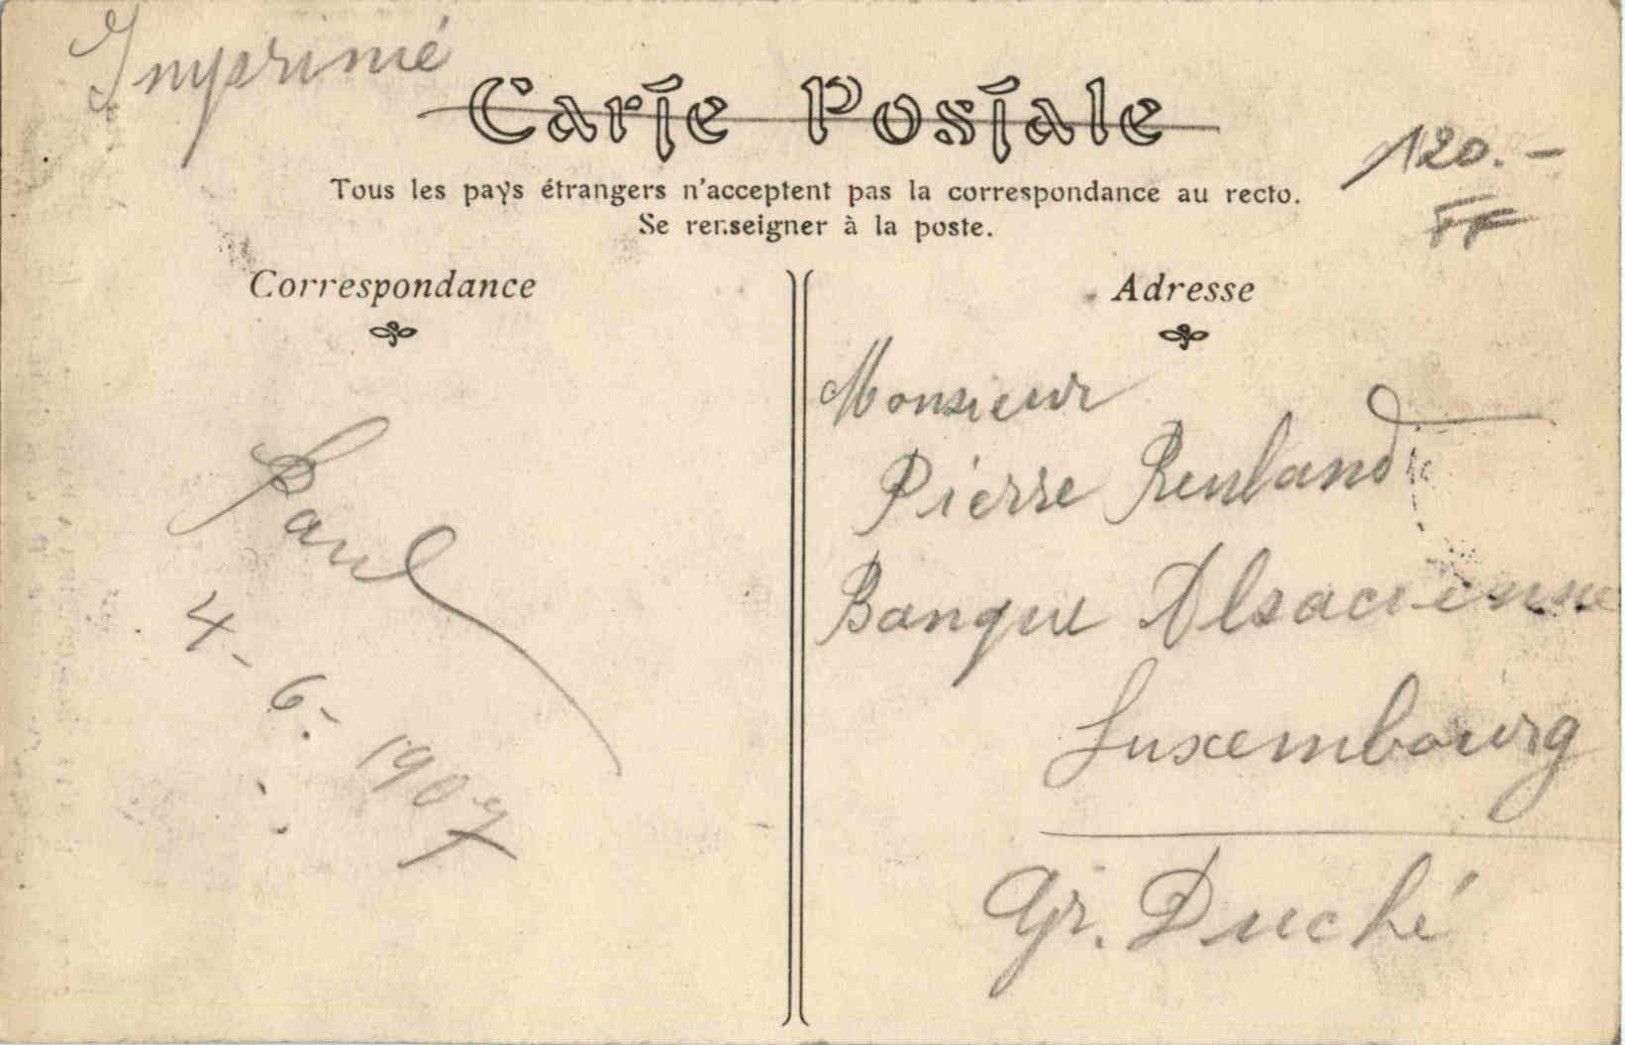 Imprimé
Carte Postale
120.-
FF
Tous les pays étrangers n'acceptent pas la correspondance au recto.
Se renseigner à la poste.
Correspondance
Paul
4-6-1907
Adresse
Monsieur
Pierre Reuland
Banque Alsacienne
Luxembourg
Gr. Duché